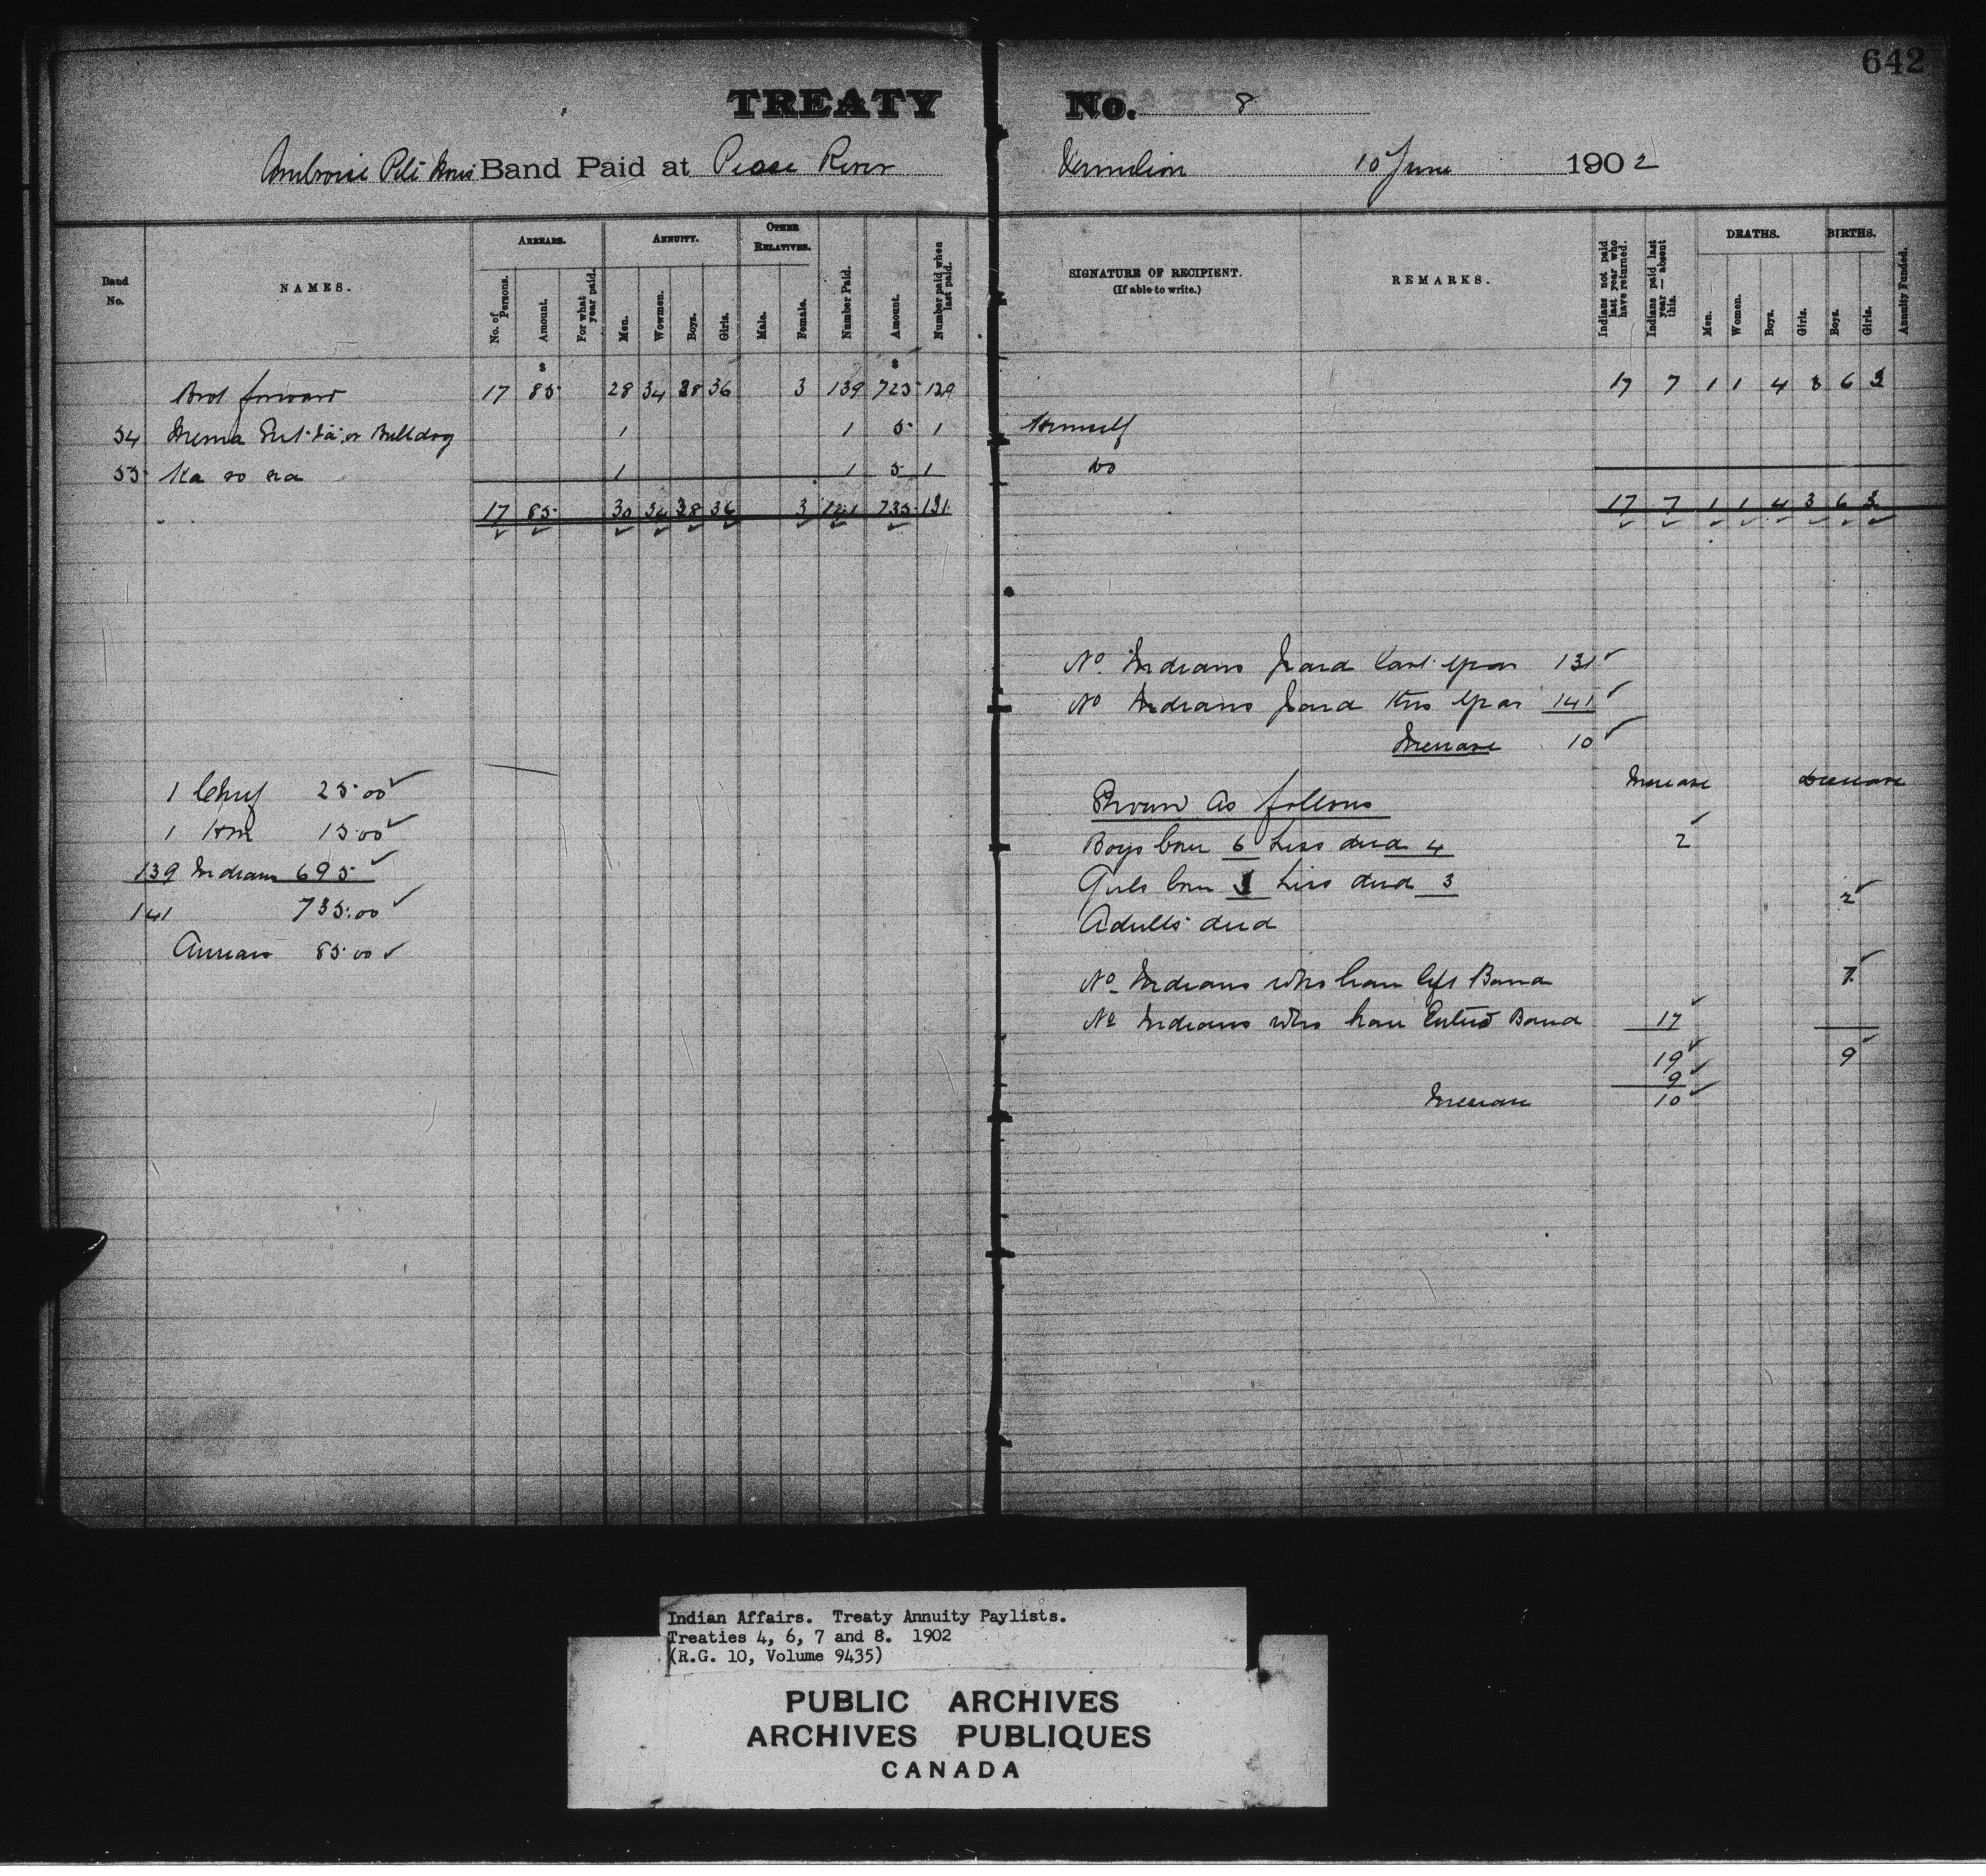 642
TREATY No. 8
Ambroise Band Paid at Peace River Vermilion 10 June 1902
Band No.
NAMES.
ARREARS.
No. of Persons.
Amount.
For what year paid.
ANNUITY.
Men.
Wowmen.
Boys.
Girls.
OTHER RELATIVES.
Male.
Female.
Number Paid.
Amount.
Number paid when last paid.
SIGNATURE OF RECIPIENT.
(If able to write.)
REMARKS.
Indians not paid last year who have returned.
Indians paid last year — absent this.
DEATHS.
Men.
Women.
Boys.
Girls.
BIRTHS.
Boys.
Girls.
Annuity Funded.
$ $
Brot forward 17 85 28 34 38 36 3 139 725 129 17 7 1 1 4 3 6 3
54 or Bulldog 1 1 5 1 Himself
55 Ka so za 1 1 5 1 do
17 85 30 34 38 36 3 141 735 131 17 7 1 1 4 3 6 3
No. Indians paid last year 131
No Indians paid this year 141
Increase 10
1 Chief 25.00
1 Hm 15.00
139 Indians 695
141 735.00
Arrears 85.00
Increase Decrease
Shown as follows
Boys born 6 Less died 4 2
Girls born 3 Less died 3
Adults died 2
No. Indians who have left Band 7
No Indians who have Entered Band 17
19 9
9
Increase 10
Indian Affairs. Treaty Annuity Paylists.
Treaties 4, 6, 7 and 8. 1902
(R.G. 10, Volume 9435)
PUBLIC ARCHIVES
ARCHIVES PUBLIQUES
CANADA